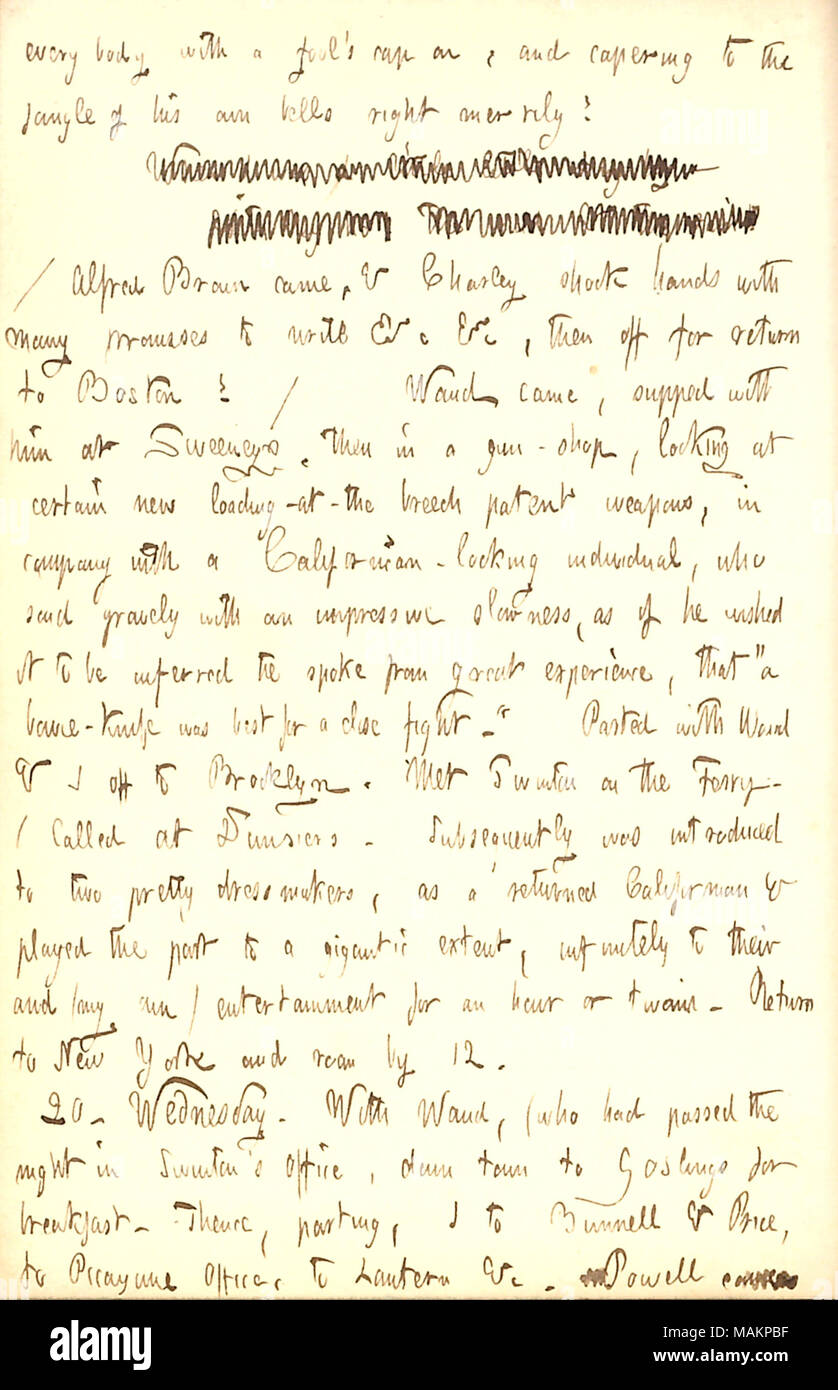 every body with a fool's cap on, and capering to the
jangle of his own bells right merrily!
/ Alfred Brown came, & Charley shook hands with
many promises to write &c &c, then off for return
to Boston! / Waud came, supped with
him at Sweeneys, then in a gun-shop, looking at
certain new loading-at-the breech patent weapons, in
company with a Californian-looking individual, who
said gravely with an impressive slowness, as if he wished
it to be inferred he spoke from great experience, that "a
bowie-knife was best for a close fight-" Parted with Waud
& I off to Brooklyn. Met Swinton on the Ferry-
/ Called at Dunsiers - Subsequently was introduced
to two pretty dressmakers, as a returned Californian &
played the part to a gigantic extent, infinitely to their
and (my own) entertainment for an hour or twain - Return
to New York and room by 12.
20- Wednesday. With Waud, (who had passed the
night in Swinton's Office, down town to Goslings for
breakfast - Thence, parting, I to Bunnell & Price,
to Picayune Office, to Lantern &c - Powell
alamy
Image ID: MAKPBF
www.alamy.com